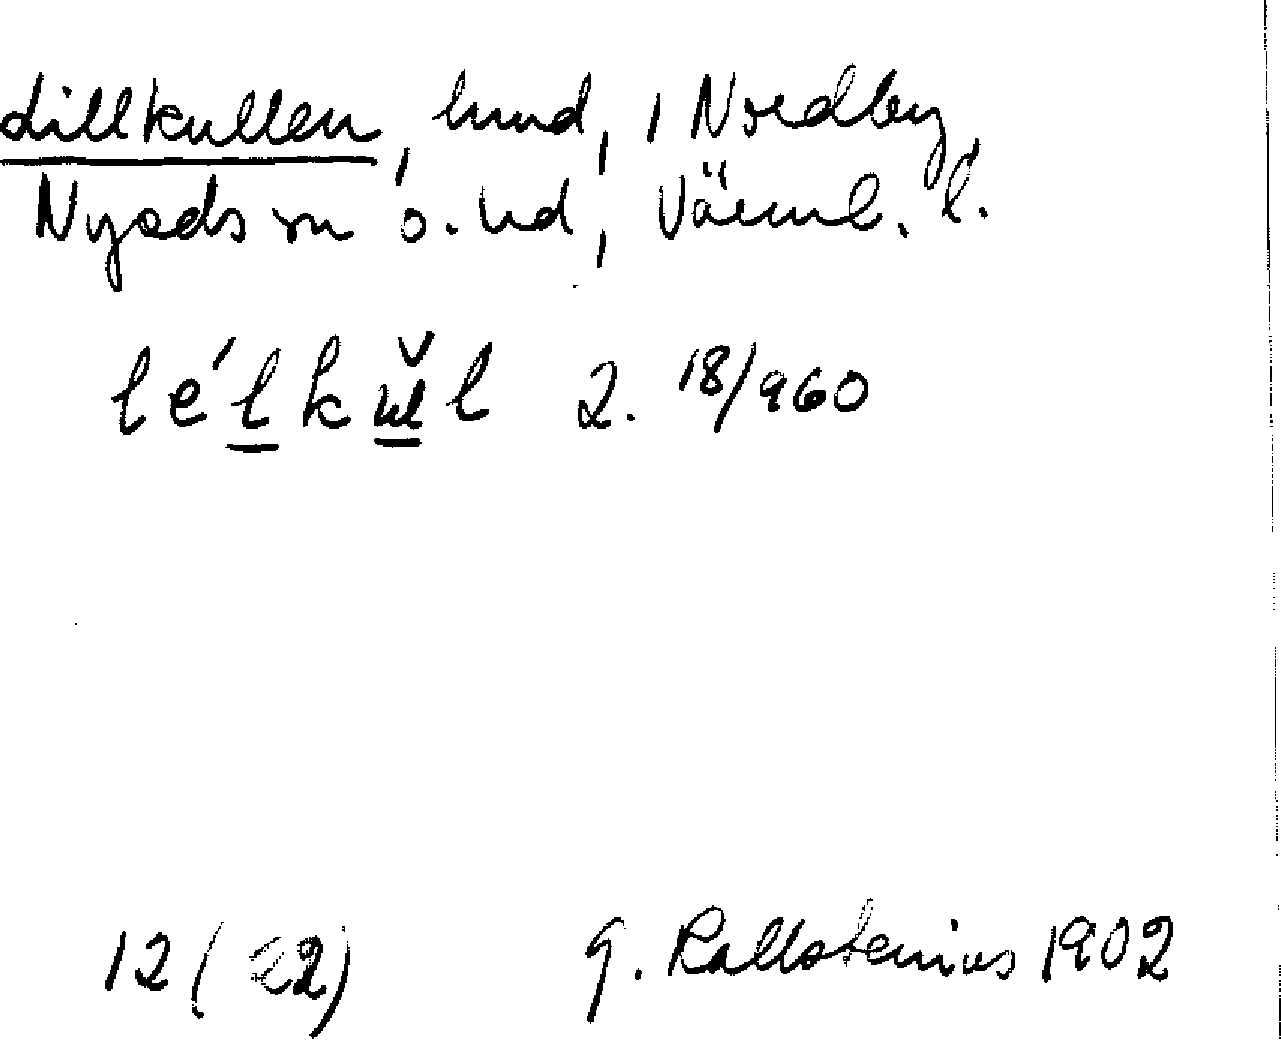 Lillkullen, lund, i Nordby,
Nyeds sn o. hd, Värml. l.
lélkŭl 2. 18/960
12 (22) G. Kallstenius 1902